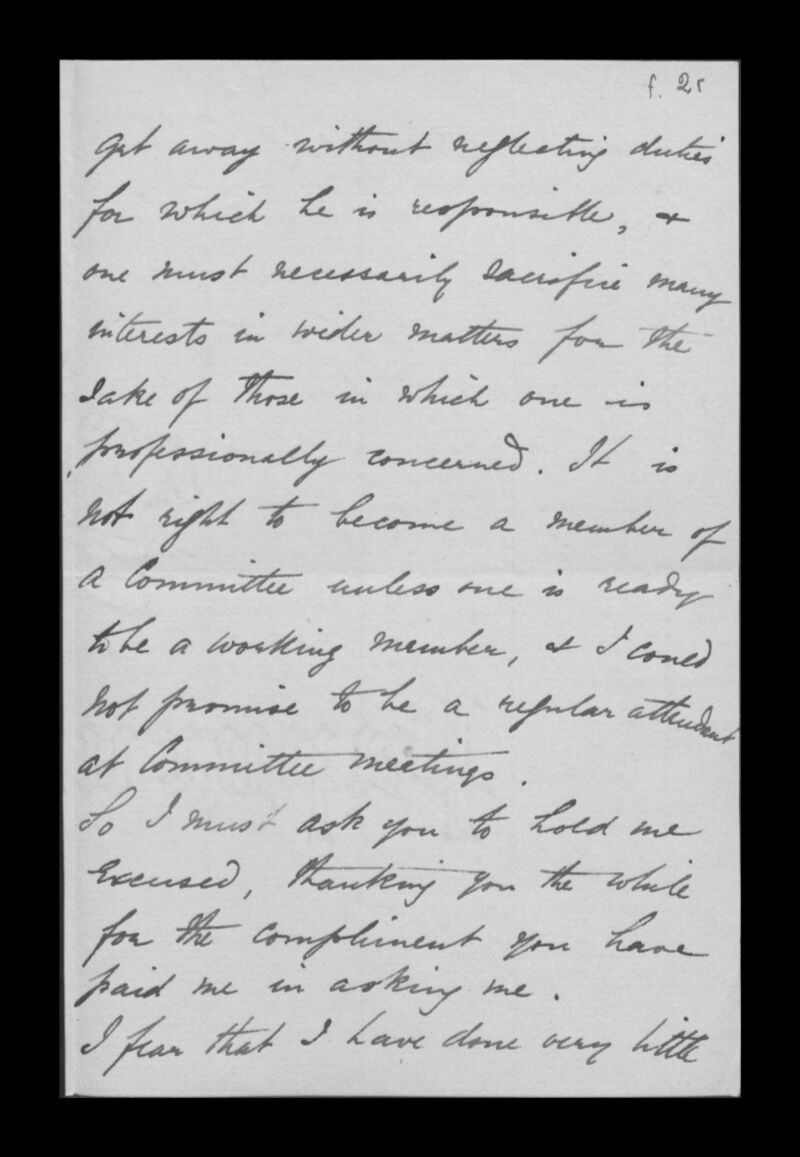 f. 2r
get away without neglecting duties
for which he is responsible, &
one must necessarily sacrifice many
interests in wider matters for the
sake of those in which one is
professionally concerned. It is
not right to become a member of
a Committee unless one is ready
to be a working member, & I could
not promise to be a regular attendant
at Committee meetings.
So I must ask you to hold me
excused, thanking you the while
for the compliment you have
paid me in asking me.
I fear that I have done very little